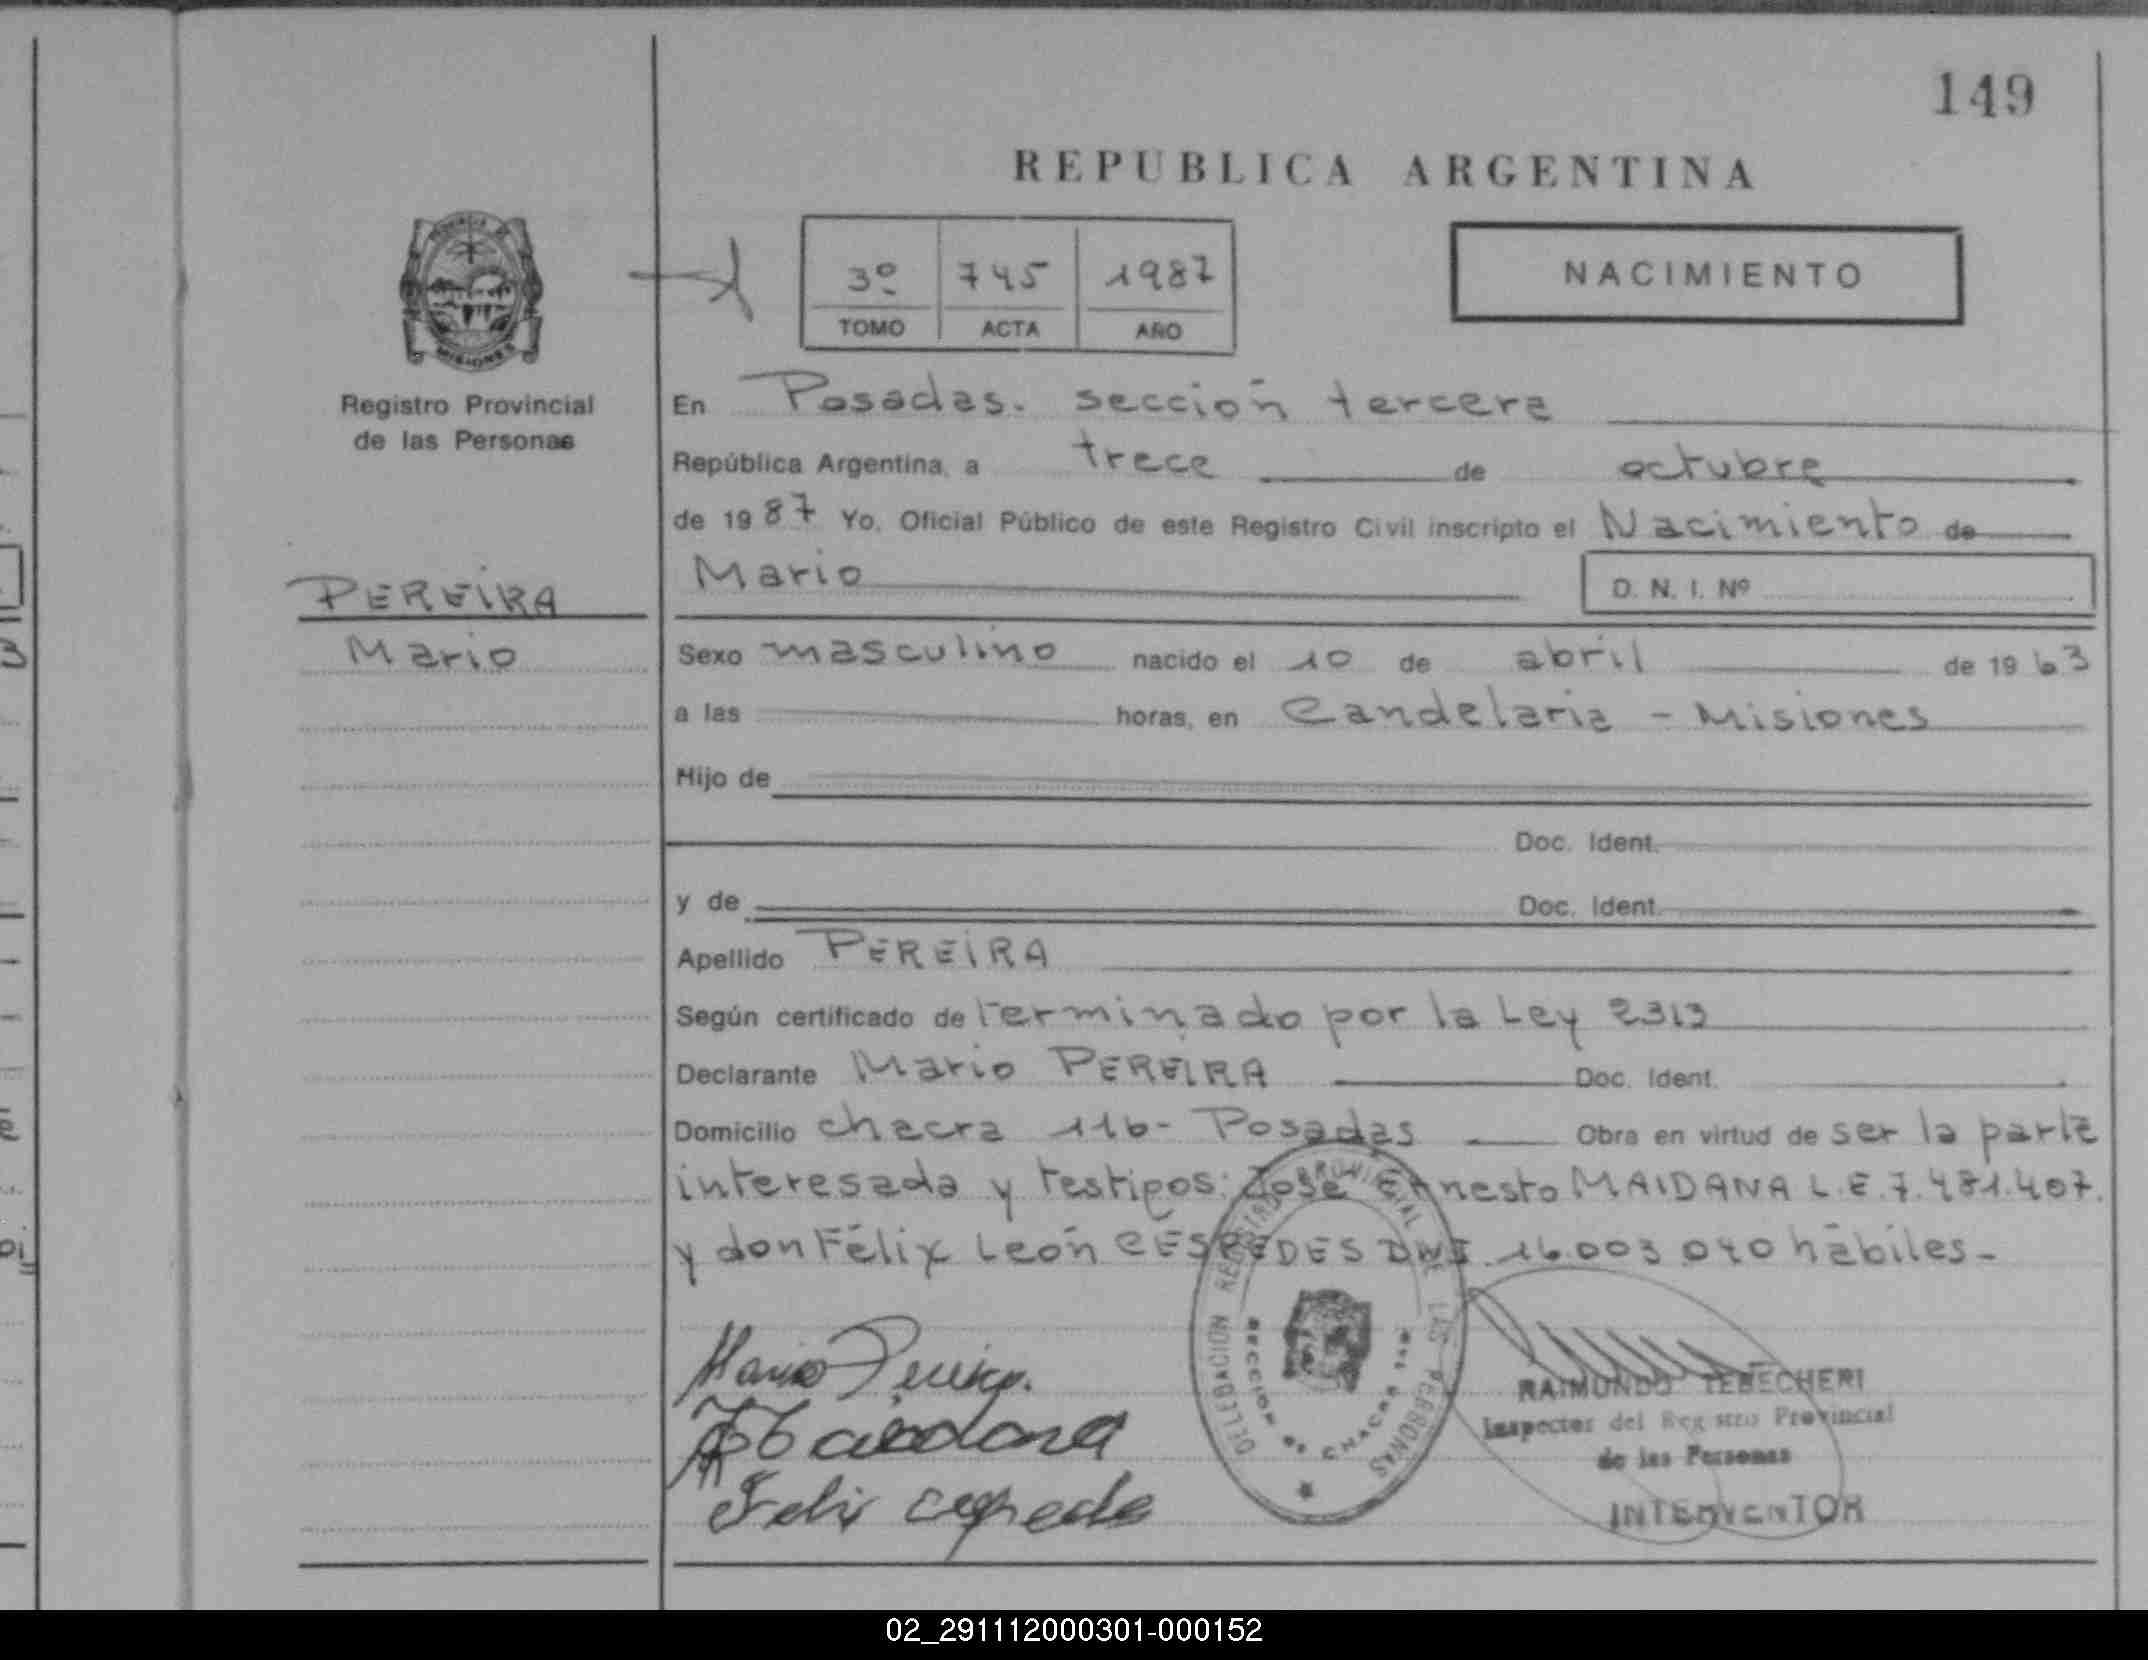 149
REPUBLICA ARGENTINA
MISIONES
Registro Provincial
de las Personas
3º 745 1987
TOMO ACTA AÑO
NACIMIENTO
En Posadas. sección tercera
República Argentina, a trece de octubre
de 1987 Yo, Oficial Público de este Registro Civil inscripto el Nacimiento de
PEREIRA
Mario
Mario D. N. I. Nº
Sexo masculino nacido el 10 de abril de 1963
a las horas, en Candelaria - Misiones
Hijo de
Doc. Ident.
y de Doc. Ident.
Apellido PEREIRA
Según certificado determinado por la Ley 2313
Declarante Mario PEREIRA Doc. Ident.
Domicilio chacra 116- Posadas Obra en virtud de ser la parte
interesada y testigos: José Ernesto MAIDANA L.E. 7.481.407.
y don Félix León CESPEDES DNI. 16.003 040 hábiles-
Mario
DELEGACION REGISTRO PROVINCIAL DE LAS PERSONAS
SECCION DE CHACRA
Felix
RAIMUNDO TEBECHERI
Inspector del Registro Provincial
de las Personas
INTERVENTOR
02_291112000301-000152